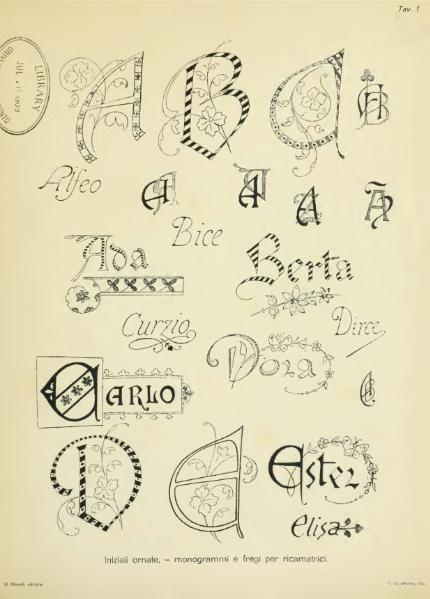 Tav. 1
LIBRARY
JUL 11 1909
A B C
Alfeo
Bice
Ada
Berta
Curzio
Dirce
Dora
CARLO
D E
Ester
elisa
Iniziali ornate, – monogrammi e fregi per ricamatrici.
U. Hoepli, editore